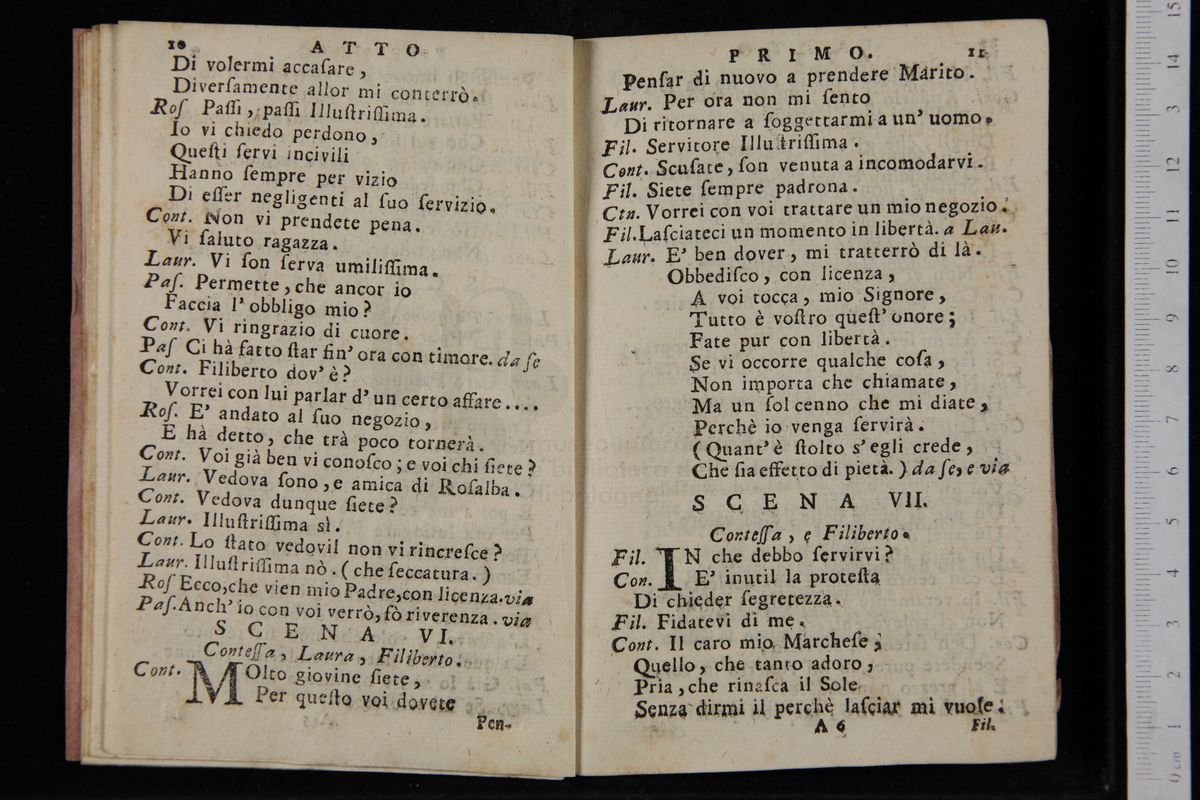 10 ATTO
Di volermi accaſare,
Diverſamente allor mi conterrò.
Roſ Paſſi, paſſi Illuſtriſſima.
Io vi chiedo perdono,
Queſti ſervi incivili
Hanno ſempre per vizio
Di eſſer negligenti al ſuo ſervizio.
Cont. Non vi prendete pena.
Vi ſaluto ragazza.
Laur. Vi ſon ſerva umiliſſima.
Paſ. Permette, che ancor io
Faccia l'obbligo mio?
Cont. Vi ringrazio di cuore.
Paſ Ci hà fatto ſtar fin' ora con timore. da ſe
Cont. Filiberto dov' è?
Vorrei con lui parlar d' un certo affare....
Roſ. E' andato al ſuo negozio,
E hà detto, che trà poco tornerà.
Cont. Voi già ben vi conoſco; e voi chi ſiete?
Laur. Vedova ſono, e amica di Roſalba.
Cont. Vedova dunque ſiete?
Laur. Illuſtriſſima sì.
Cont. Lo ſtato vedovil non vi rincreſce?
Laur. Illuſtriſſima nò. (che ſeccatura.)
Roſ Ecco, che vien mio Padre, con licenza. via
Paſ. Anch' io con voi verrò, fò riverenza. via
SCENA VI.
Conteſſa, Laura, Filiberto.
Cont. MOlto giovine ſiete,
Per queſto voi dovete
Pen-
PRIMO. 11
Penſar di nuovo a prendere Marito.
Laur. Per ora non mi ſento
Di ritornare a ſoggettarmi a un' uomo.
Fil. Servitore Illuſtriſſima.
Cont. Scuſate, ſon venuta a incomodarvi.
Fil. Siete ſempre padrona.
Ctn. Vorrei con voi trattare un mio negozio.
Fil. Laſciateci un momento in libertà. a Lau.
Laur. E' ben dover, mi tratterrò di là.
Obbediſco, con licenza,
A voi tocca, mio Signore,
Tutto è voſtro queſt' onore;
Fate pur con libertà.
Se vi occorre qualche coſa,
Non importa che chiamate,
Ma un ſol cenno che mi diate,
Perchè io venga ſervirà.
(Quant' è ſtolto s' egli crede,
Che ſia effetto di pietà.) da ſe, e via
SCENA VII.
Conteſſa, e Filiberto.
Fil. IN che debbo ſervirvi?
Con. E' inutil la proteſta
Di chieder ſegretezza.
Fil. Fidatevi di me.
Cont. Il caro mio Marcheſe;
Quello, che tanto adoro,
Pria, che rinaſca il Sole
Senza dirmi il perchè laſciar mi vuole.
A 6 Fil.
0 cm 1 2 3 4 5 6 7 8 9 10 11 12 13 14 15